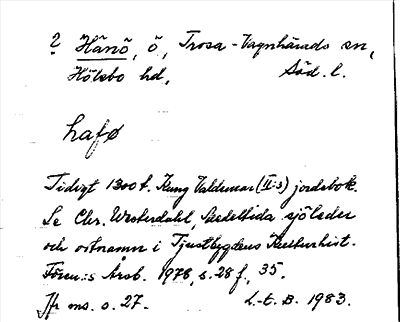 ? Hånö, ö, Trosa-Vagnhärads sn,
Hölebo hd, Söd. l.
hafø
Tidigt 1300 t. Kung Valdemar (II:s) jordebok.
Se Chr. Westerdahl, Medeltida sjöleder
och ortnamn i Tjustbygdens Kulturhist.
Fören:s Årsb. 1978, s. 28 f, 35.
Jfr ms. s. 27. L.-E. B. 1983.